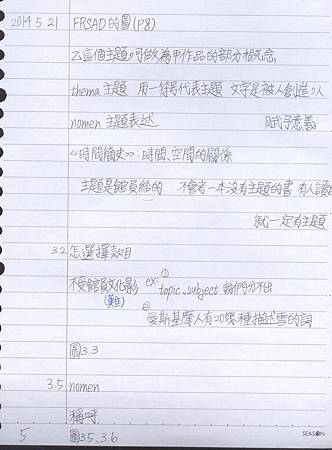 2014 5 21 FRSAD的圖(P8)
乙這個主題,可做為甲作品的部分概念
thema 主題 用一符號代表主題 文字是被人創造,人
nomen 主題表述 賦予意義
<<時間簡史>>:時間、空間的關係
主題是館員給的 不會有一本沒有主題的書 有人讀
就一定有主題
3.2 怎選擇款目
不受館員文化影 ex: ① topic、subject 我們分不出
(難)
② 愛斯基摩人有20幾種描述雪的詞
圖3.3
3.5 nomen
稱呼
圖3.5、3.6
5
SEASON